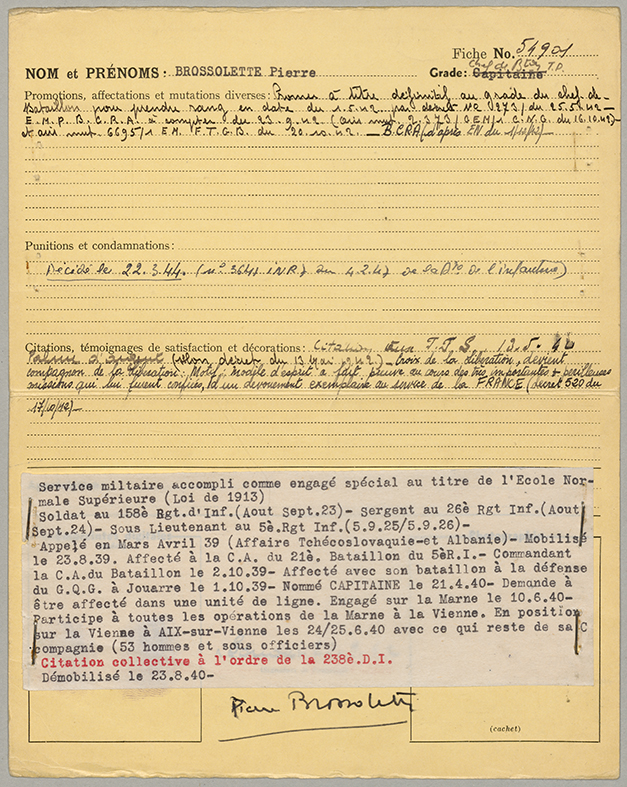 Fiche No. 54901
Chef de Btn T.D.
NOM et PRÉNOMS: BROSSOLETTE Pierre Grade: Capitaine
Promotions, affectations et mutations diverses: Promu à titre définitif au grade du chef de
Bataillon pour prendre rang en date du 1.5.42 par décret No 273/ du 25.5.42 —
E.M.P.B.C.R.A. à compter du 23.9.42 (avis mut. 2.373/GEM/1 C.N.G. du 16.10.42) —
et avis mut. 6695/1 E.M. F.T.G.B. du 20.10.42 — BCRA (d'après EN du
Punitions et condamnations:
Décédé le 22.3.44. (n° 3641 INR) du 4.2.47 de la de l'infanterie)
Citations, témoignages de satisfaction et décorations: Citation 13.5.42
(selon décret du 13 mai 1942) — Croix de la libération, devient
compagnon de la libération: Motif: modèle d'esprit a fait preuve au cours des très importantes & périlleuses
missions qui lui furent confiées, d'un dévouement exemplaire au service de la FRANCE (décret 520 du
17/10/42) —
Service miltaire accompli comme engagé spécial au titre de l'Ecole Nor-
male Supérieure (Loi de 1913)
Soldat au 158è Rgt.d'Inf.(Aout Sept.23)- Sergent au 26è Rgt Inf.(Aout
Sept.24)- Sous Lieutenant au 5è.Rgt Inf.(5.9.25/5.9.26)-
Appelé en Mars Avril 39 (Affaire Tchécoslovaquie-et Albanie)- Mobilisé
le 23.8.39. Affecté à la C.A. du 21è. Bataillon du 5èR.I.- Commandant
la C.A.du Bataillon le 2.10.39- Affecté avec son bataillon à la défense
du G.Q.G. à Jouarre le 1.10.39- Nommé CAPITAINE le 21.4.40- Demande à
être affecté dans une unité de ligne. Engagé sur la Marne le 10.6.40-
Participe à toutes les opérations de la Marne à la Vienne. En position
sur la Vienne à AIX-sur-Vienne les 24/25.6.40 avec ce qui reste de sa C
compagnie (53 hommes et sous officiers)
Citation collective à l'ordre de la 238è.D.I.
Démobilisé le 23.8.40-
Pierre Brossolette
(cachet)